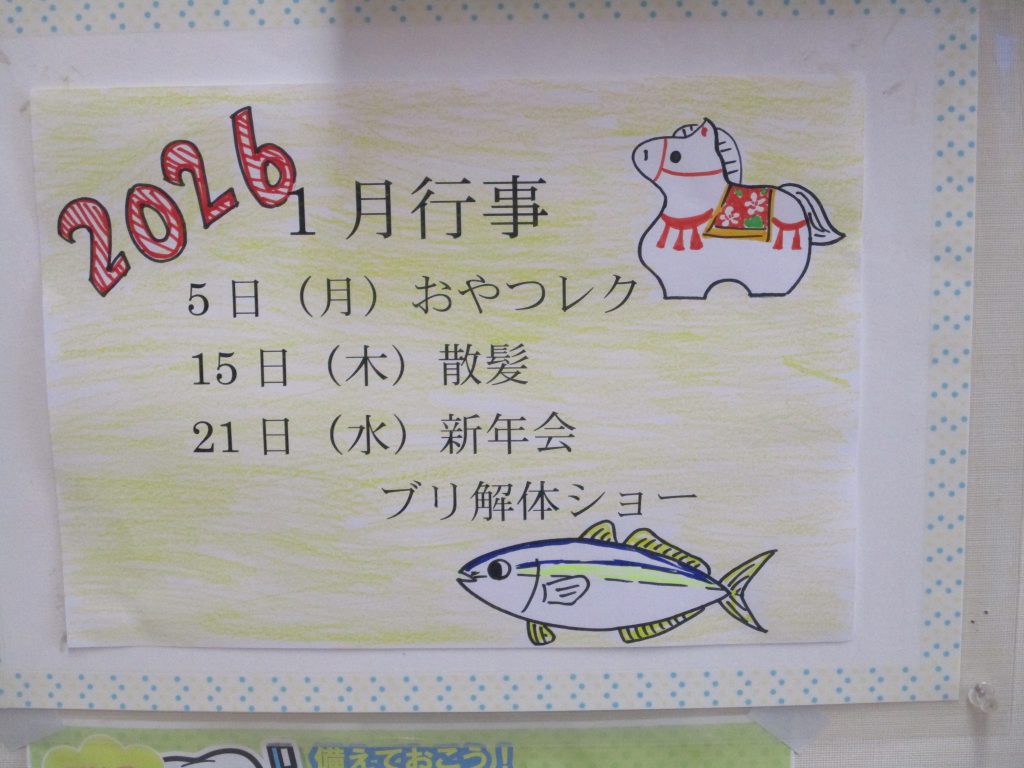 2026
1月行事
5日（月）おやつレク
15日（木）散髪
21日（水）新年会
ブリ解体ショー
備えておこう！